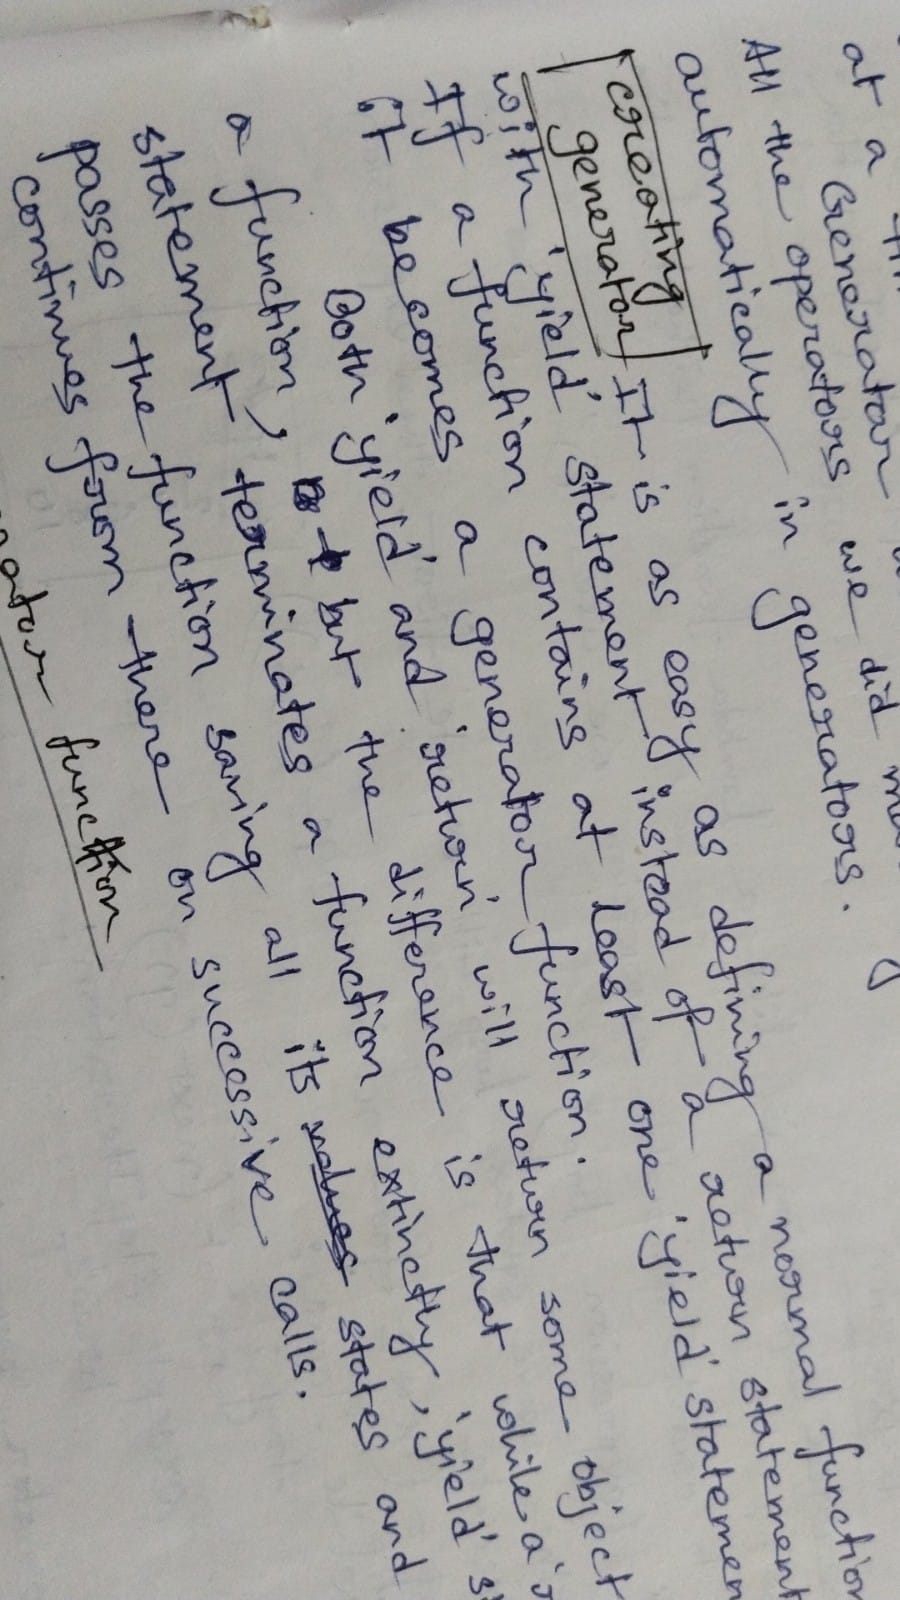 at a
Generator
All the operators we did
automatically in generators.
creating
generator
It is as easy as defining a normal function
with 'yield' statement instead of a return statement
If a function contains at least one 'yield' statemen
it becomes a generator function.
Both 'yield' and 'return' will return some object
a function, but the difference is that while a 'r
statement terminates a function extinctly, 'yield' s
passes the function saving all its values states and
continues from there on successive calls.
rator function